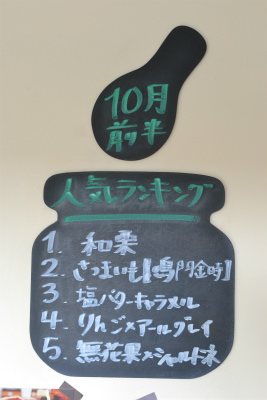 10月
前半
人気ランキング
1. 和栗
2. さつまいも【鳴門金時】
3. 塩バターキャラメル
4. りんご×アールグレイ
5. 無花果×シャルドネ